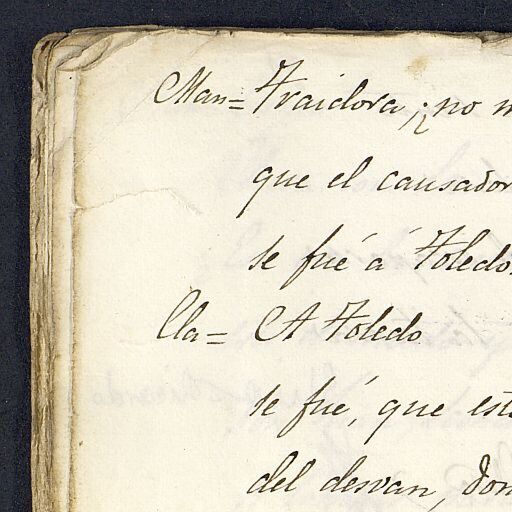 Man= Traidora, ¿no
que el causador
se fué á Toledo.
Cla= A Toledo
se fué, que est
del desvan, don